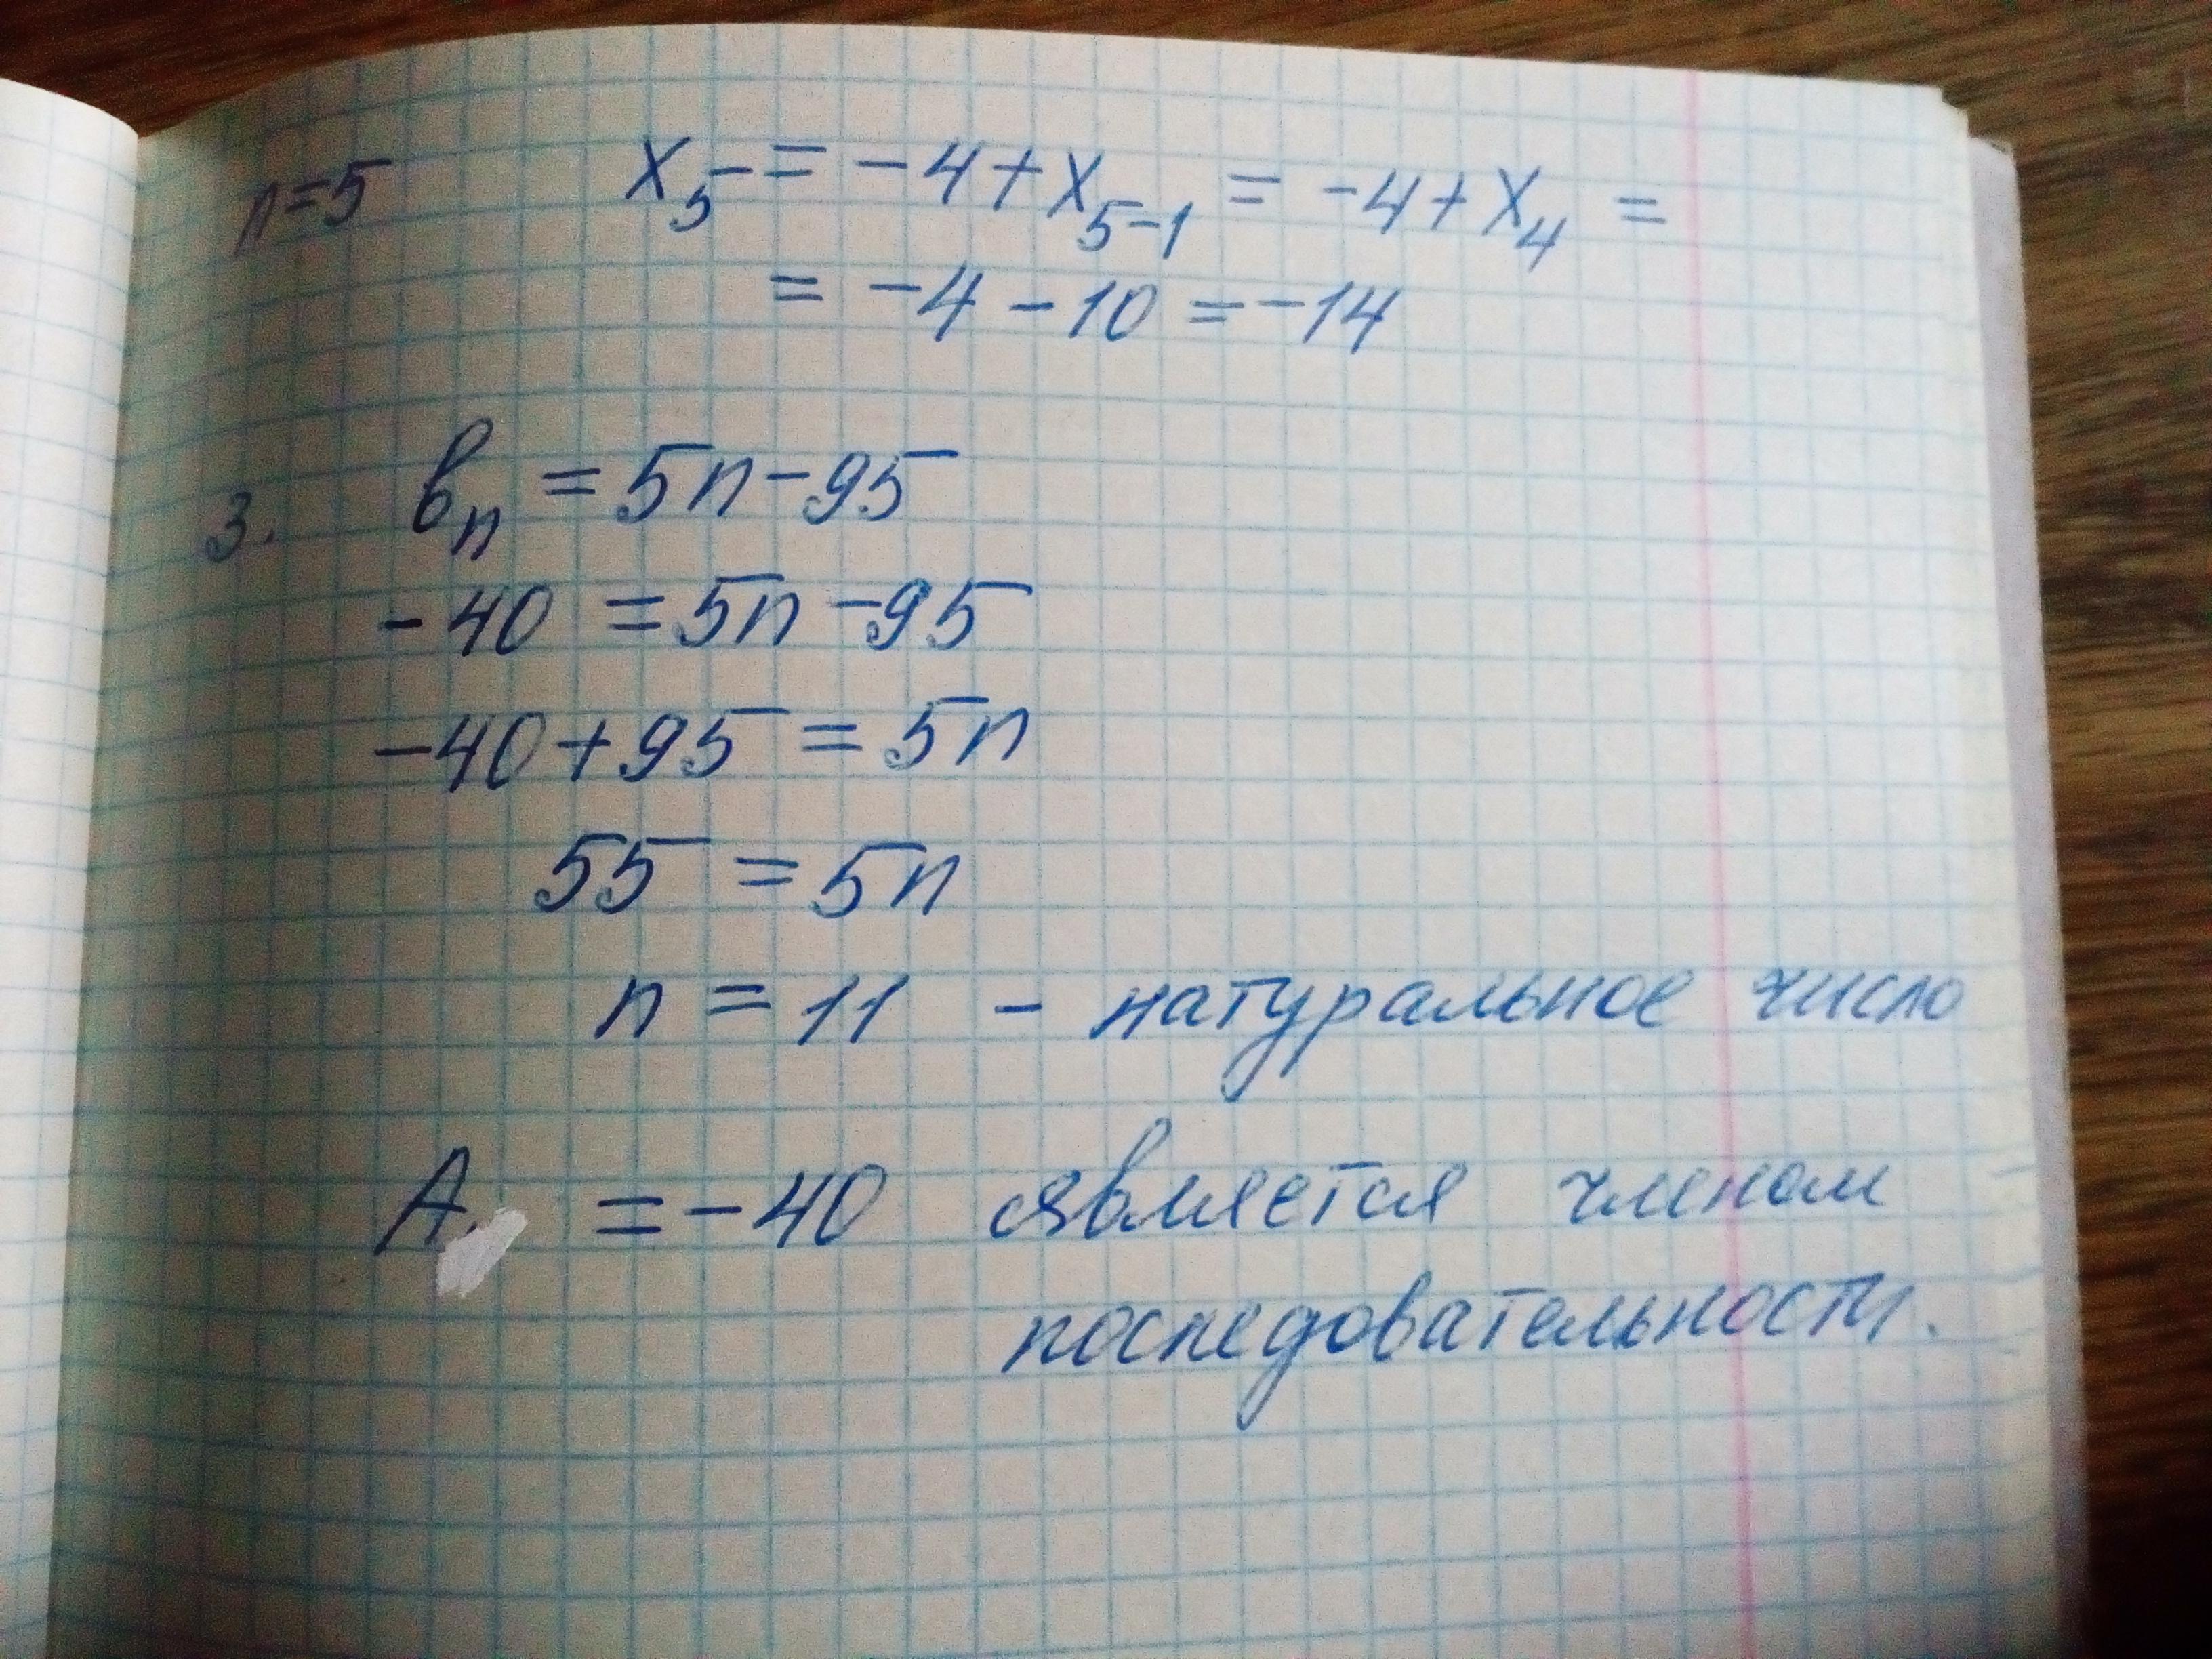 n=5 x₅ = -4+x₅₋₁ = -4+x₄ =
= -4 -10 = -14
3. вₙ = 5n-95
-40 = 5n-95
-40+95 = 5n
55 = 5n
n = 11 - натуральное число
A = -40 является членом
последовательности.